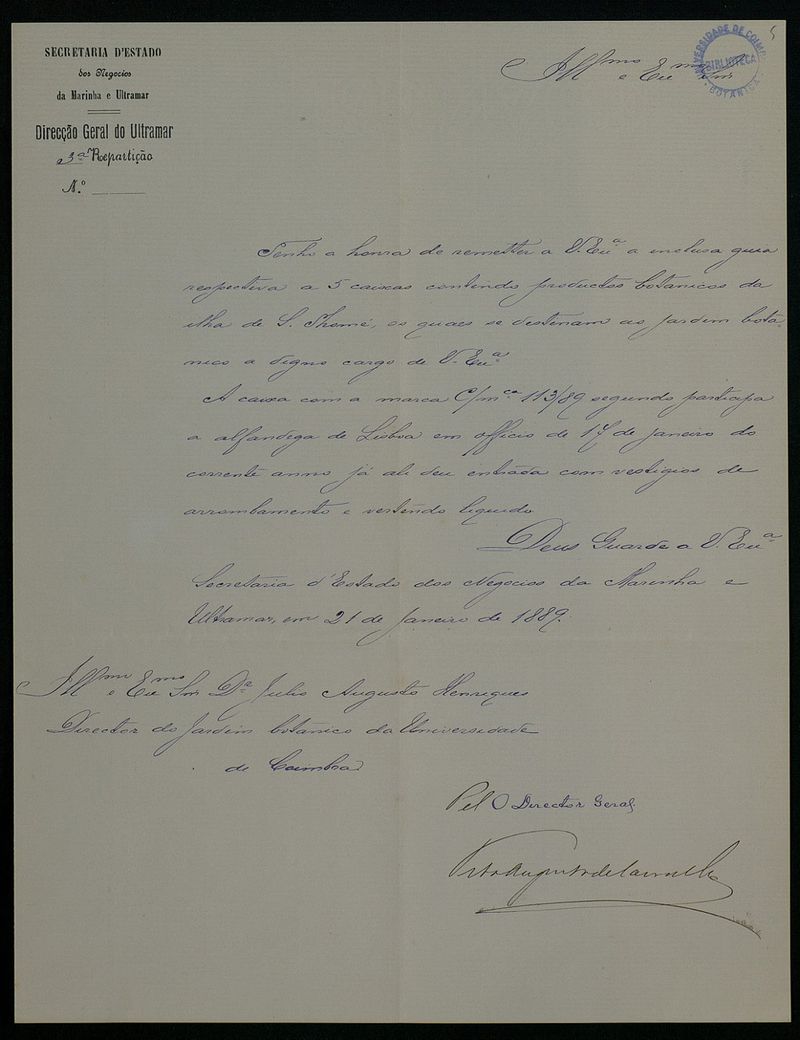 SECRETARIA D'ESTADO
dos Negocios
da Marinha e Ultramar
Direcção Geral do Ultramar
3ª Repartição
N.º
UNIVERSIDADE DE COIMBRA
BIBLIOTECA
BOTANICA
5
Illmo e Exmo Snr
Tenho a honra de remetter a V. Exª a inclusa guia
respectiva a 5 caixas contendo productos botanicos da
ilha de S. Thomé, os quaes se destinam ao jardim bota-
nico a digno cargo de V. Exª
A caixa com a marca C/mca 113/89 segundo participa
a alfandega de Lisboa em officio de 17 de Janeiro do
corrente anno já ali deu entrada com vestigios de
arrombamento e vertendo liquido.
Deus Guarde a V. Exª
Secretaria d'Estado dos Negocios da Marinha e
Ultramar, em 21 de Janeiro de 1889.
Illmo e Exmo Snr Dr Julio Augusto Henriques
Director do Jardim botanico da Universidade
de Coimbra
Pel O Director Geral
Augusto de Carvalho